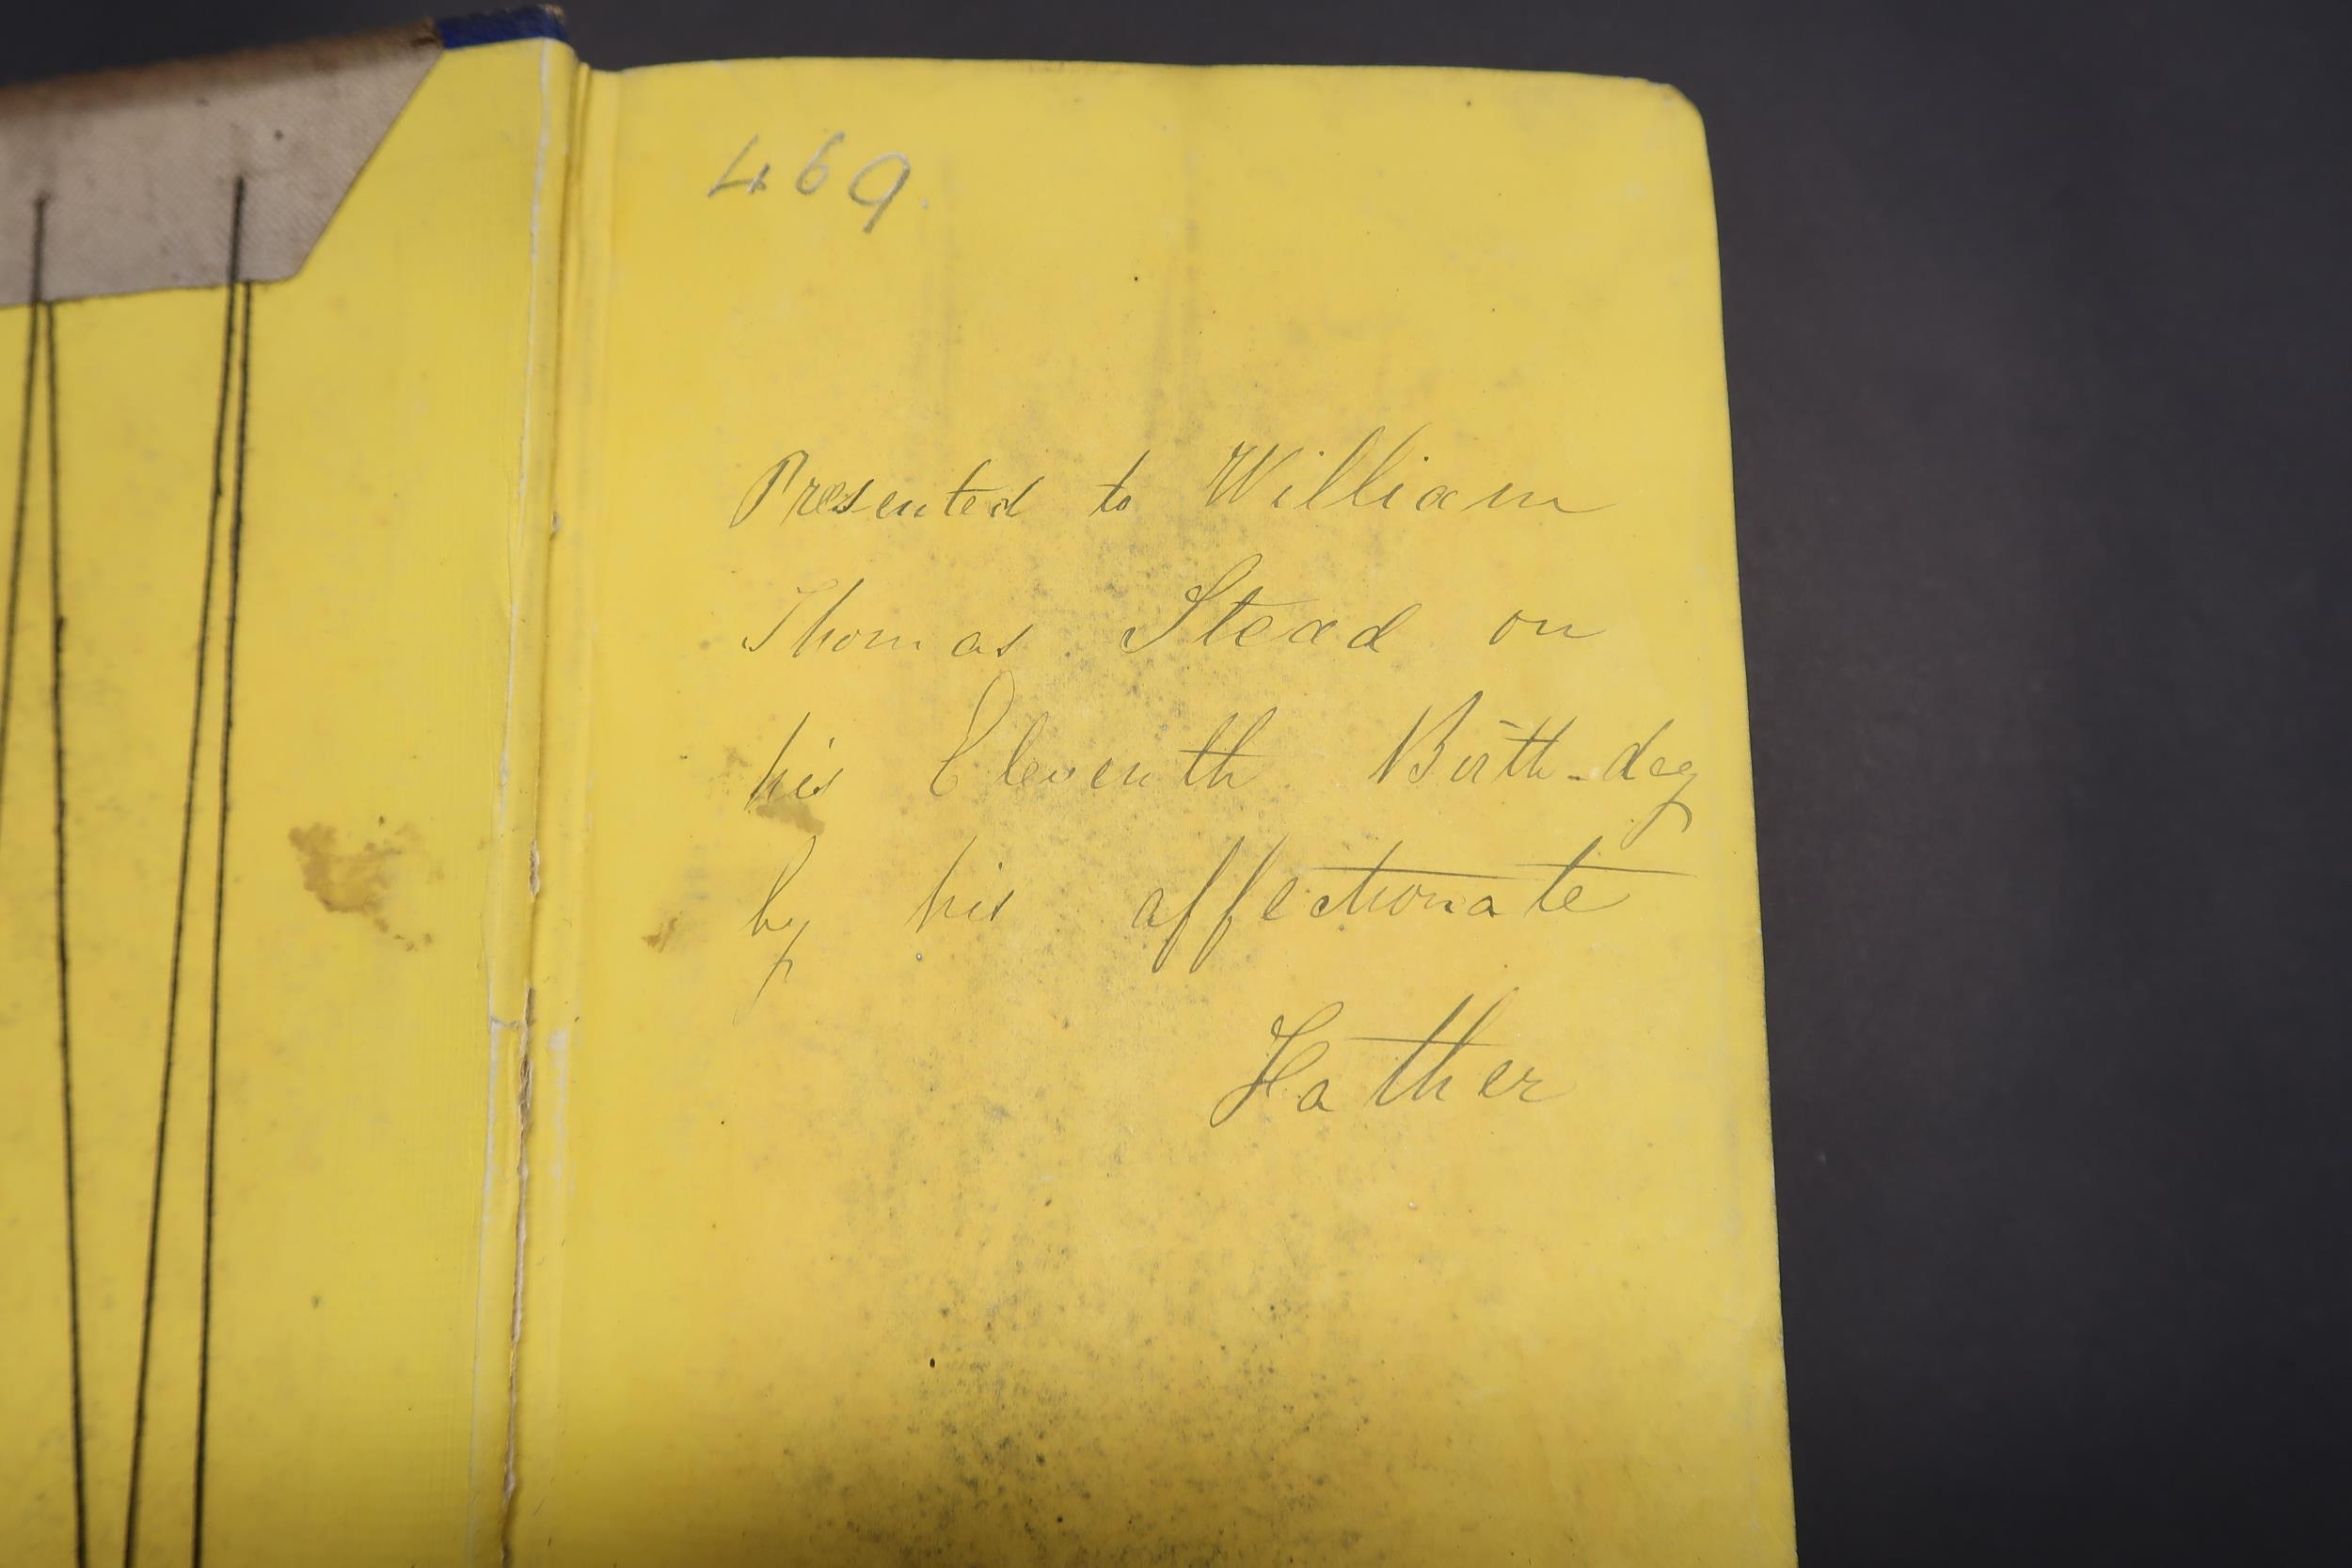 469.
Presented to William
Thomas Stead on
his Eleventh Birth-day
by his affectionate
Father